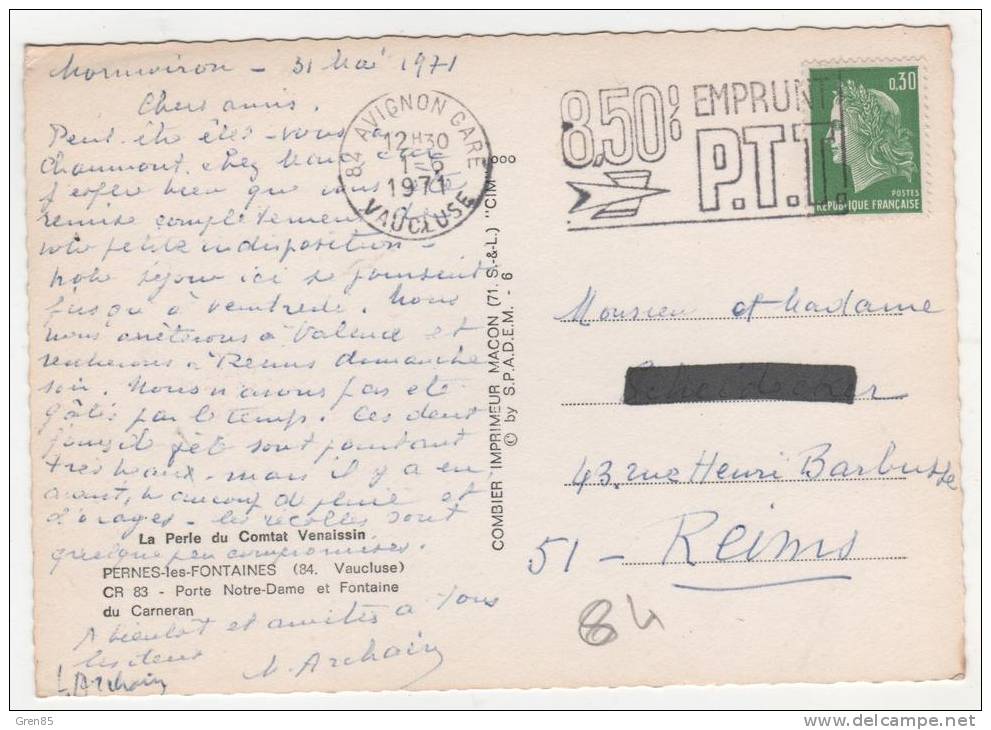 Mormoiron - 31 Mai 1971
Chers amis.
Peut être êtes-vous à
Chaumont. chez
J'espère bien que vous êtes
remise complètement de
votre petite indisposition -
Notre séjour ici se poursuit
jusqu'à vendredi. Nous
nous arrêterons à Valence et
rentrerons à Reims dimanche
soir. Nous n'avons pas été
gâtés par le temps. Ces deux
jours de fête sont pourtant
très beaux. mais il y a eu
avant, beaucoup de pluie et
d'orages - les récoltes sont
quelque peu compromises.
La Perle du Comtat Venaissin
PERNES-les-FONTAINES (84. Vaucluse)
CR 83 - Porte Notre-Dame et Fontaine
du Carneran
A bientôt et amitiés à vous
les deux
COMBIER IMPRIMEUR MACON (71. S.-&-L.) "CIM"
© by S.P.A.D.E.M. - 6
84 AVIGNON GARE
12H30
1-6
1971
VAUCLUSE
8,50% EMPRUNT
P.T.T.
0,30
POSTES
REPUBLIQUE FRANÇAISE
Monsieur et Madame
43. rue Henri Barbusse
51 - Reims
84
Gren85
http://www.delcampe.net